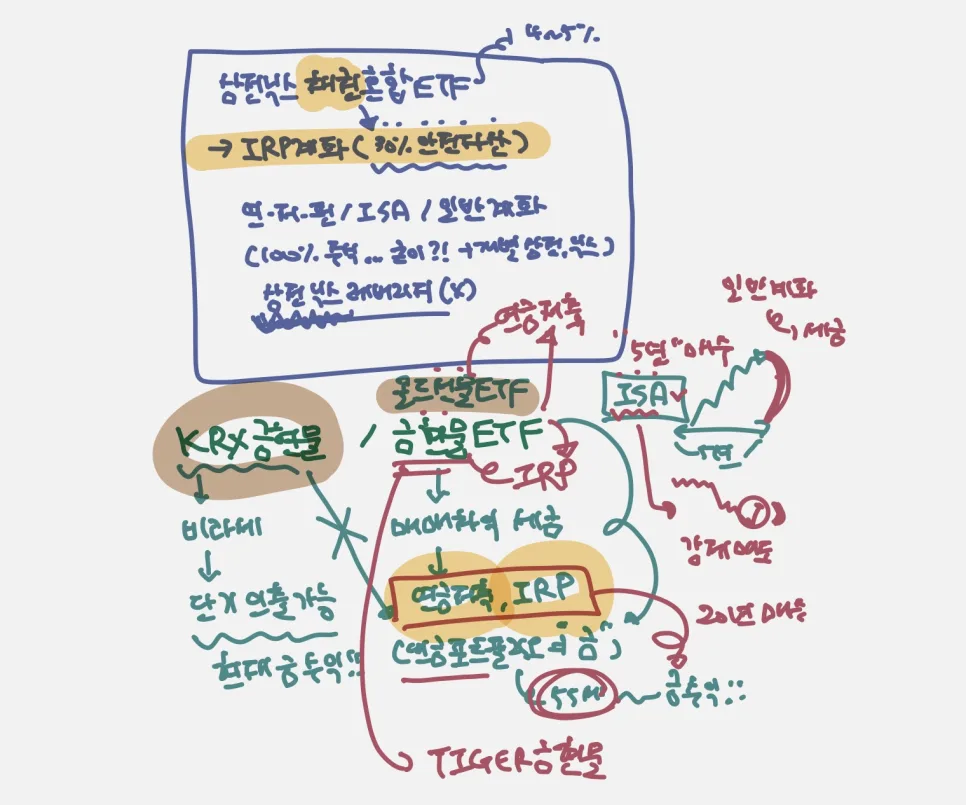 4~5%
삼전닉스 채권혼합ETF
→ IRP계좌 (30% 안전자산)
연.저.펀 / ISA / 일반계좌
(100% 주식... 굳이?! → 개별 삼전,닉스)
삼전닉스 레버리지 (X)
일반계좌
세금
연금저축
5년 매수
골드선물ETF
ISA
KRX금현물 / 금현물ETF
5년
IRP
비과세
매매차익 세금
강제매도
단기 인출가능
연금저축, IRP
20년 매수
현재 금수익!!
(연금포트폴리오 여 "금")
55세
금수익!!
TIGER금현물